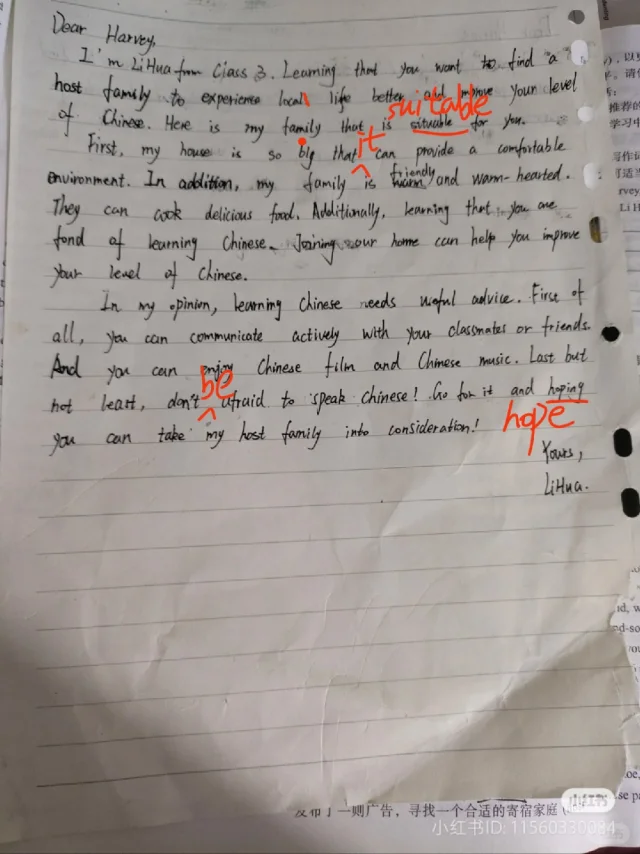 Dear Harvey,
I'm LiHua from Class 3. Learning that you want to find a
host family to experience local life better and improve your level
suitable
of Chinese. Here is my family that is situable for you.
it
First, my house is so big that can provide a comfortable
friendly
environment. In addition, my family is and warm-hearted.
They can cook delicious food. Additionally, learning that you are
fond of learning Chinese. Joining our home can help you improve
your level of Chinese.
In my opinion, learning Chinese needs useful advice. First of
all, you can communicate actively with your classmates or friends.
And you can enjoy Chinese film and Chinese music. Last but
be
not least, don't afraid to speak chinese! Go for it and hoping
hope
you can take my host family into consideration!
Yours,
LiHua.
发布了一则广告，寻找一个合适的寄宿家庭
小红书
小红书ID: 11560330084